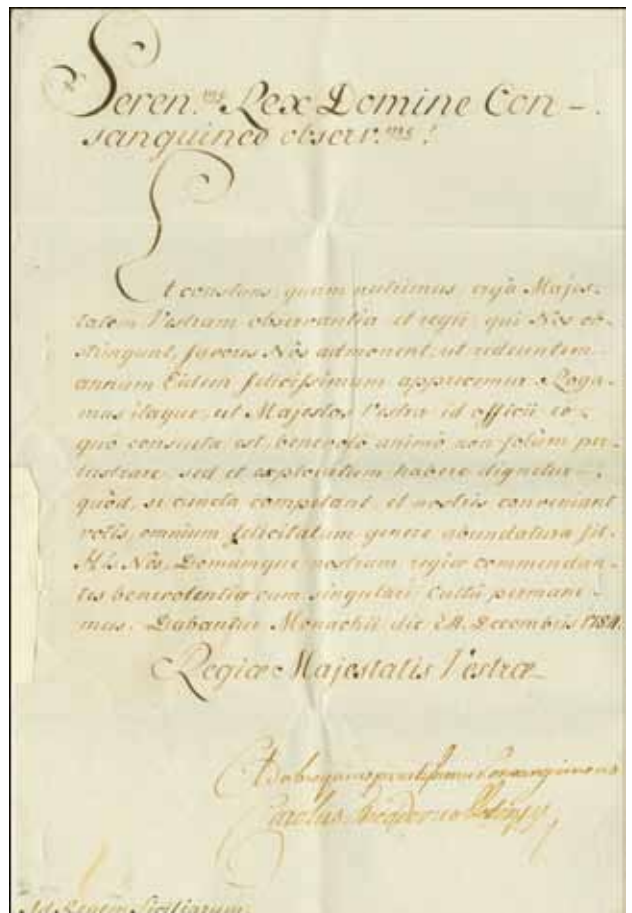 Seren.me Rex Domine Con-
sanguineo observ.me!
Et constans, quam nutrimus erga Majes-
tatem Vestram observantia et regii, qui Nos ob-
stringunt, favores Nos admonent, ut redeuntem
annum Eidem felicissimum apprecemur. Roga-
mus itaque, ut Majestas Vestra id officii eo,
quo consueta est, benevolo animo non solùm per-
lustrare, sed et exploratum habere dignetur
quòd, si cuncta competant, et nostris conveniant
votis, omnium felicitatum genere abundatura sit.
His Nos, Domumque nostram regiæ commendan-
tes benevolentiæ cum singulari cultu permane-
mus. Dabantur Monachii die 24. Decembris 1784.
Regiæ Majestatis Vestræ
Consanguineus
Carolus Theodorus
Ad Regem Siciliarum